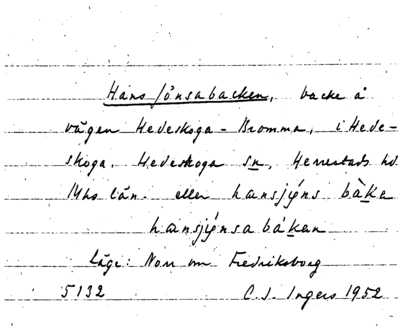 Hans Jönsabacken, backe å
vägen Hedeskoga - Bromma, i Hede-
skoga. Hedeskoga sn, Herrestads hd
Mhs län. eller hansjýns bàka
hansjýnsabákan
Läge: Norr om Fredriksborg
5132 C. I. Ingers 1952